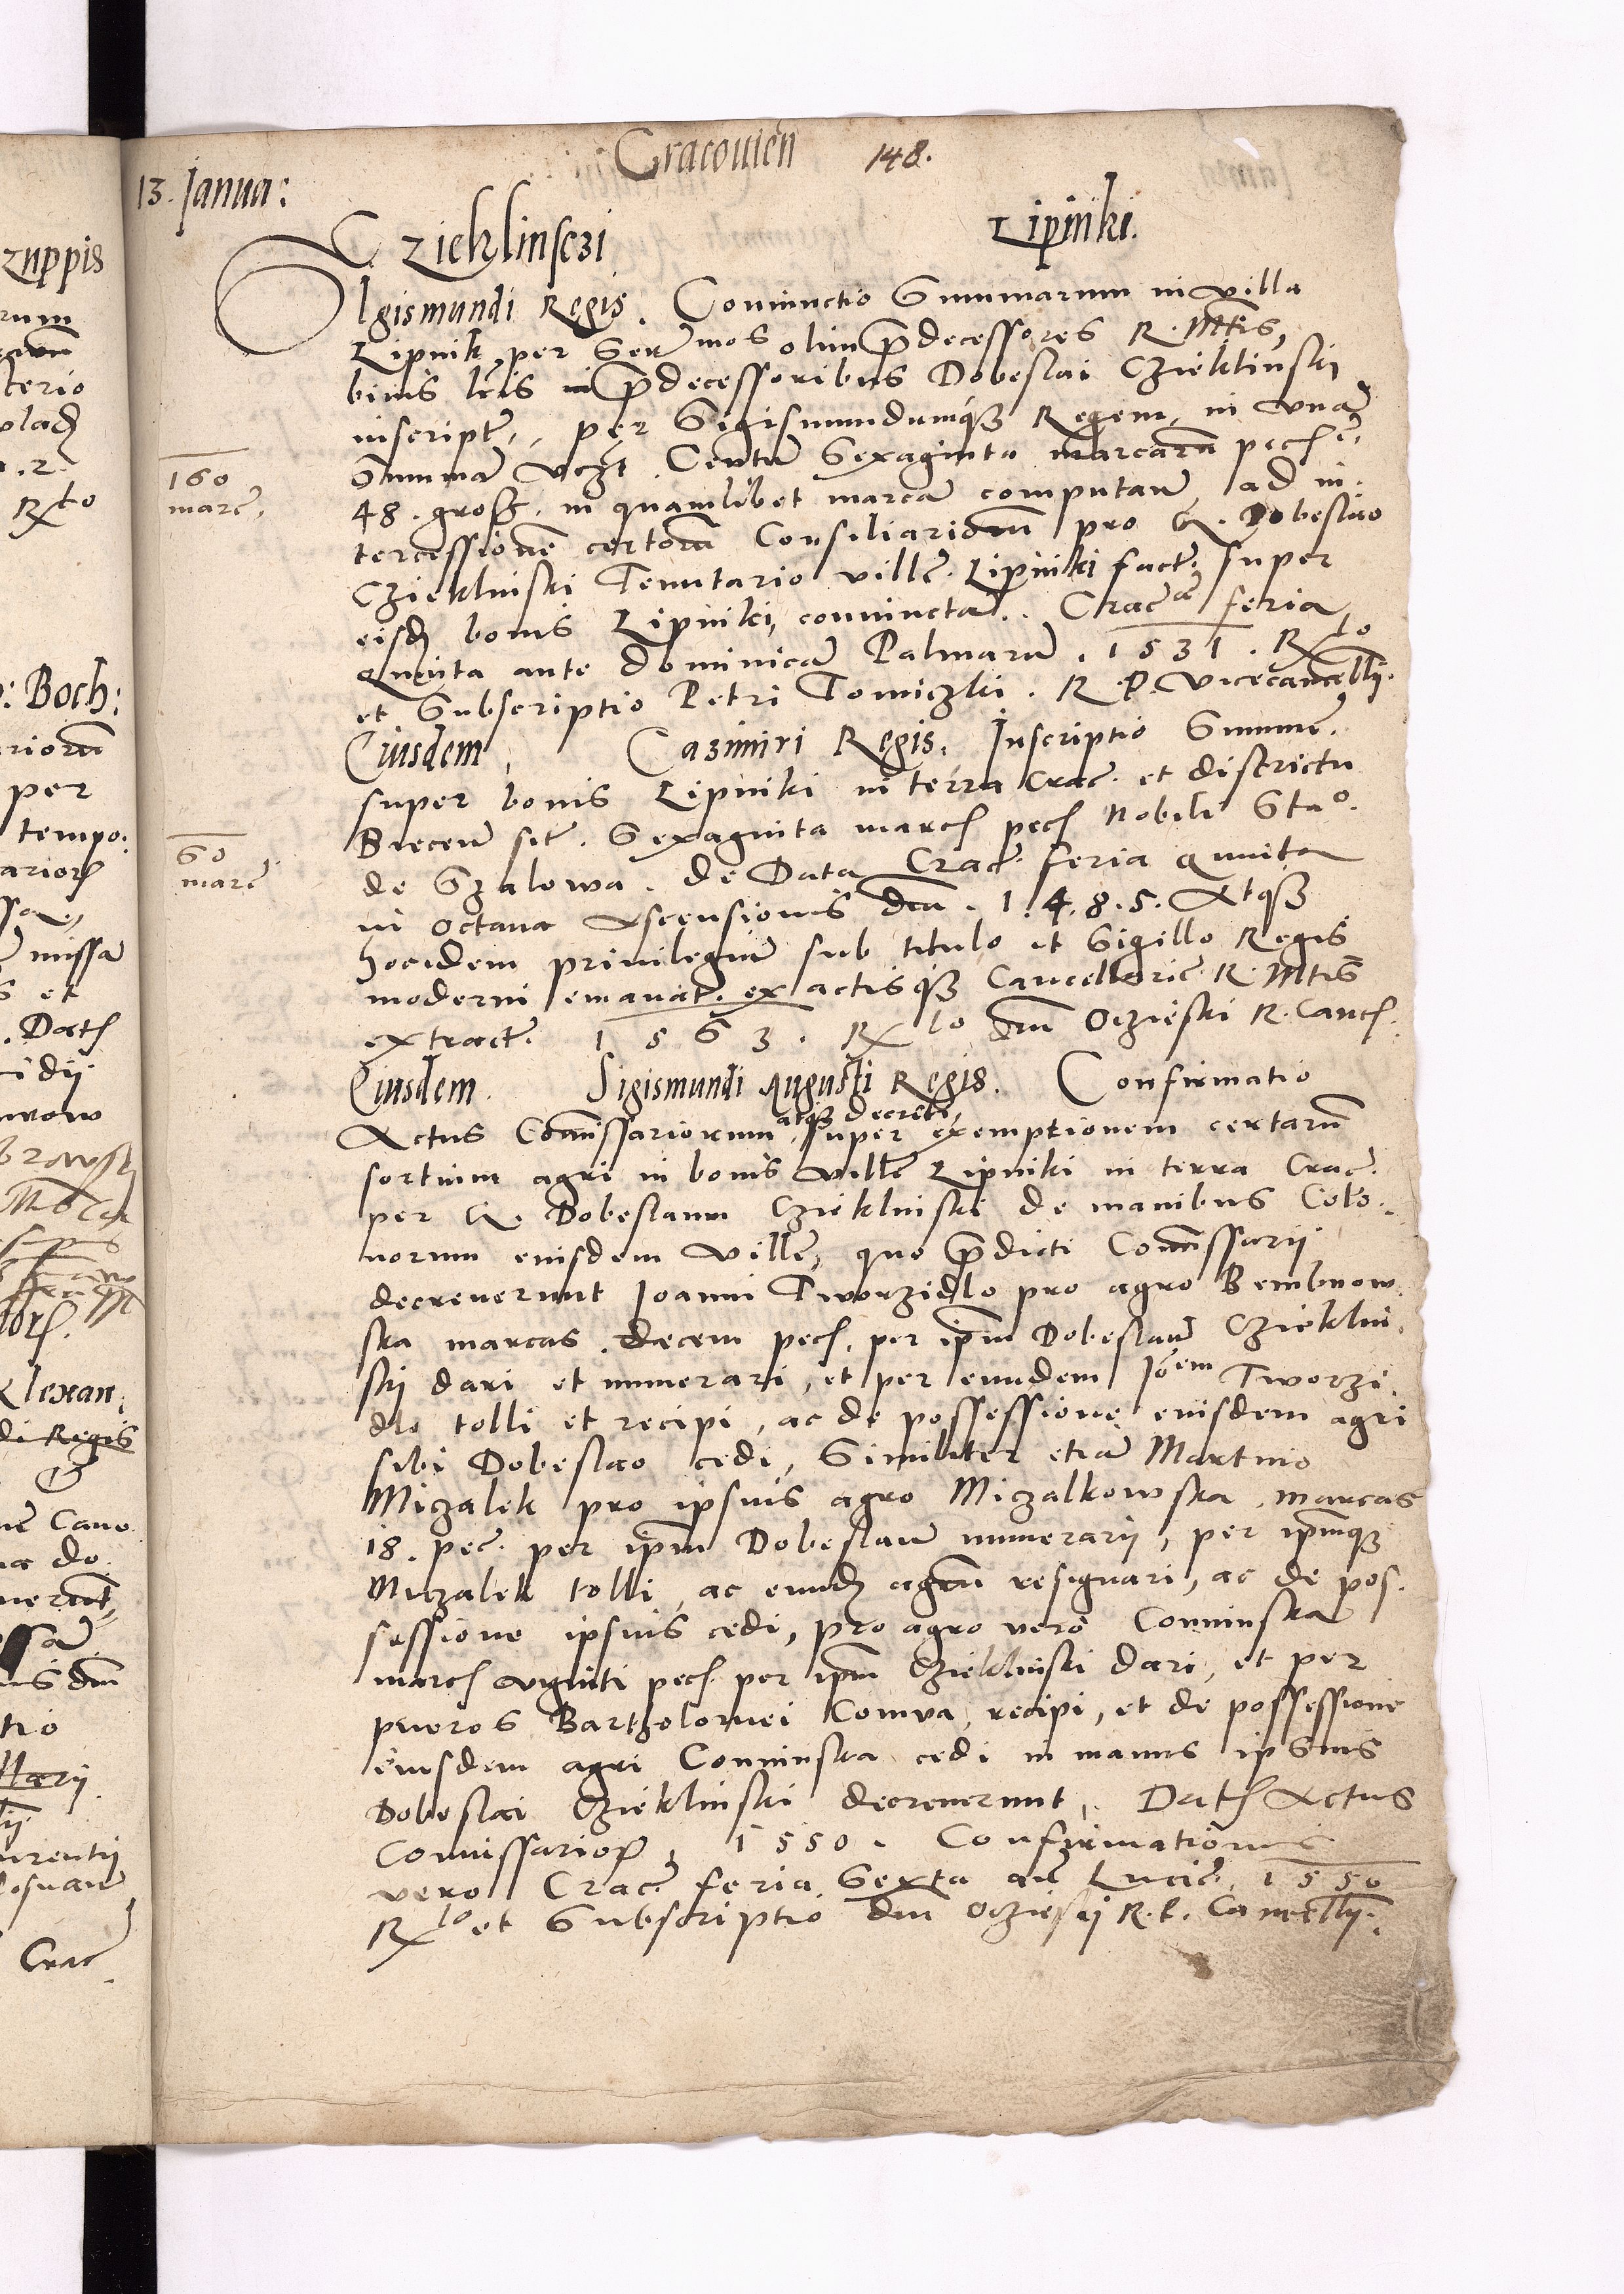 Cracouien 148.
13. Janua:
Cziеklinsczi Lipniki.
Sigismundi Regis. Coniunctio Summarum in villa
Lipnik per Sermos olim p̄decessores R. Mtis,
binis lr̄is p̄decessoribus Dobeslai Cziеklinskj
inscript., per Sigismundumq3 Regem, in vnā
Summā vcz̄t. Centū Sexaginta marcarū pecn̄ē.
160
marc̄,
48. gross. in quamlibet marcā computan̄, ad in.
tercessionē certorū Consiliariorū pro G. Dobeslao
Czieklinski Tenutario villȩ. Lipniki fact. super
eisd̄ bonis Lipniki, coniunctar. Cracae feria
Quinta ante dominicā Palmarū. 1531. Rto
et Subscriptio Petri Tomiczki. R. P. Vicecancellij.
Eiusdem, Casimiri Regis. Inscriptio Summȩ.
super bonis Lipniki in terra Crac. et districtu
Biecen̄ sit. Sexaginta marc̄ pec̄ Nobili Stao.
60
marc̄
de Szalowa. de Data Crac. feria quinta
in Octaua Ascensionis dn̄i. 1.4.8.5. Atq3
hocidem priuilegiū sub titulo et Sigillo Regis
moderni emanat. ex actisq3 Cancellariȩ R. Mtis
extract. 1563. Rto dn̄i Oczieski R. Canc̄.
Eiusdem. Sigismundi Augusti Regis. Confirmatio
atq3 decreti,
Actus Com̄issariorum super exemptionem certarū
sortium agri in bonis villȩ Lipniki in terra Crac.
per G. Dobeslaum Czieklinski de manibus Colo.
norum eiusdem villȩ, quo p̄dicti Com̄issarij
decreuerunt Joanni Tworzidlo pro agro Bembnow.
ska marcas decem pec̄. per ip̄m Dobeslaū Czieklin.
skj dari et numerari, et per eundem Joēm Tworzi.
dlo tolli et recipi, ac de possessione eiusdem agri
sibi Dobeslao cedi, Similiter etiā Martino
Miczalek pro ipsius agro Miczalkowska, marcas
18. pec. per ip̄m Dobeslaū numerarij, per ip̄mq3
Miczalek tolli, ac eund̄ agrū resignari, ac de pos.
sessione ipsius cedi, pro agro vero Coninska
marc̄ viginti pec̄. per ip̄m Czieklinski dari, et per
pueros Bartholomei Comra, recipi, et de possessione
eiusdem agri Coninska cedi in manus ipsius
Dobeslai Czieklinski decreuerunt. Dat̄ Actus
Comissarior̄, 1550. Confirmationis
vero Crac. feria Sexta an̄ Luciȩ. 1550
Rto et Subscriptio dn̄i Oczieskj R. P. Cancellij.